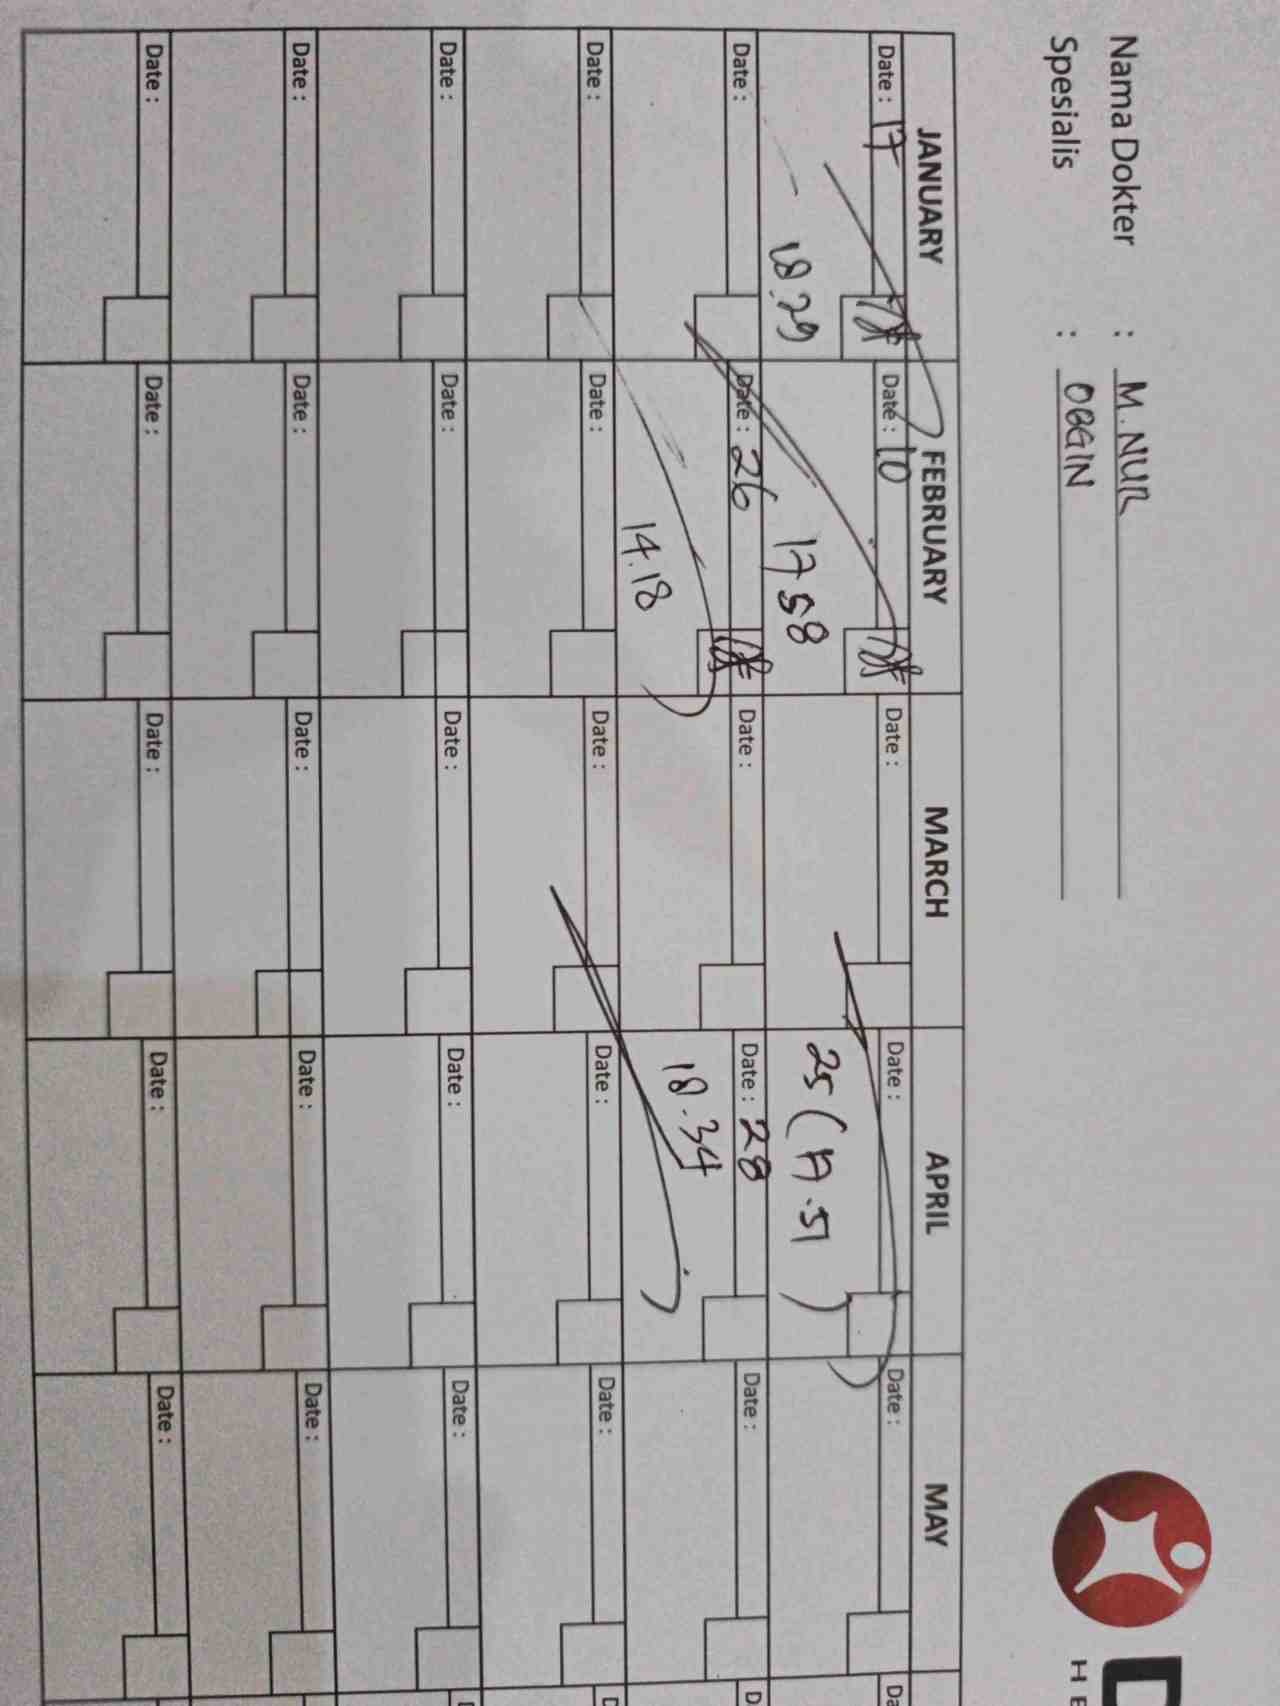 Nama Dokter : M. NUR
Spesialis : OBGIN
HE
JANUARY FEBRUARY MARCH APRIL MAY
Date : 17 Date : 10 Date : Date : Date : Da
18.29 17 58 25 (17.51)
Date : Date : 26 Date : Date : 28 Date : D
14.18 18.34
Date : Date : Date : Date : Date : D
Date : Date : Date : Date : Date : D
Date : Date : Date : Date : Date :
Date : Date : Date : Date : Date :